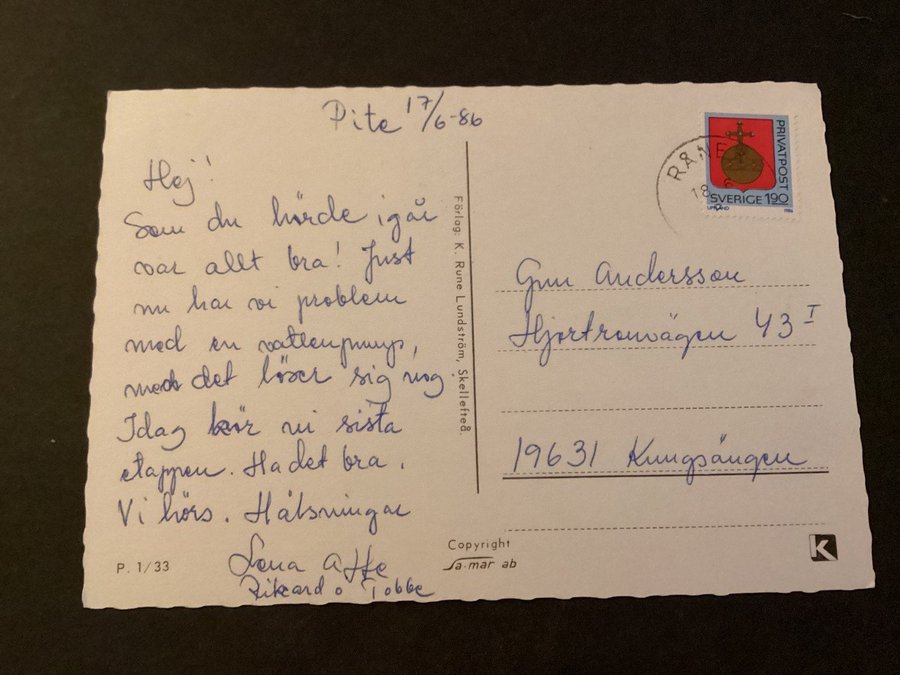 Pite 17/6-86
Hej!
Som du hörde igår
var allt bra! Just
nu har vi problem
med en vattenpump,
men det löser sig nog.
Idag kör vi sista
etappen. Ha det bra.
Vi hörs. Hälsningar
Lena Affe
Rikard o Tobbe
P. 1/33
Förlag: K. Rune Lundström, Skellefteå.
Copyright
sa-mar ab
RÅNE
PRIVATPOST
SVERIGE 190
UPPLAND 1986
Gun Andersson
Hjortronvägen 43 I
19631 Kungsängen
K